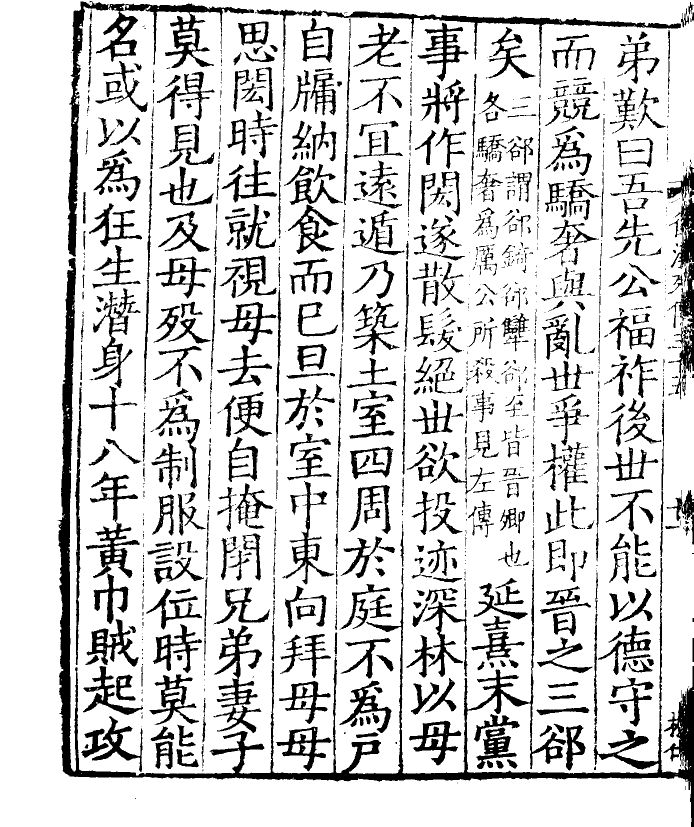 弟歎曰吾先公福祚後世不能以德守之
而競爲驕奢與亂世爭權此即晉之三郤
矣三郤謂郤錡郤犫郤至皆晉卿也各驕奢爲厲公所殺事見左傳延熹末黨
事將作閎遂散髮絕世欲投迹深林以母
老不宜遠遁乃築土室四周於庭不爲戶
自牖納飲食而已旦於室中東向拜母母
思閎時往就視母去便自掩閉兄弟妻子
莫得見也及母歿不爲制服設位時莫能
名或以爲狂生潛身十八年黃巾賊起攻